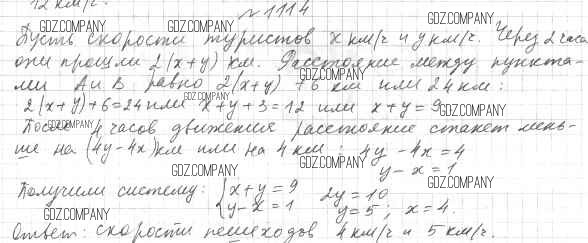 12 км/ч.
№1114
Пусть скорости туристов x км/ч и y км/ч. Через 2 часа
они прошли 2(x+y) км. Расстояние между пункта-
ми A и B равно 2(x+y)+6 км или 24 км:
2(x+y)+6=24 или x+y+3=12 или x+y=9
После 4 часов движения расстояние станет мень-
ше на (4y-4x)км или на 4 км; 4y-4x=4
y-x=1
Получили систему: { x+y=9 2y=10
y-x=1 y=5; x=4.
Ответ: скорости пешеходов 4 км/ч и 5 км/ч.
GDZ.COMPANY
GDZ.COMPANY
GDZ.COMPANY
GDZ.COMPANY
GDZ.COMPANY
GDZ.COMPANY
GDZ.COMPANY
GDZ.COMPANY
GDZ.COMPANY
GDZ.COMPANY
GDZ.COMPANY
GDZ.COMPANY
GDZ.COMPANY